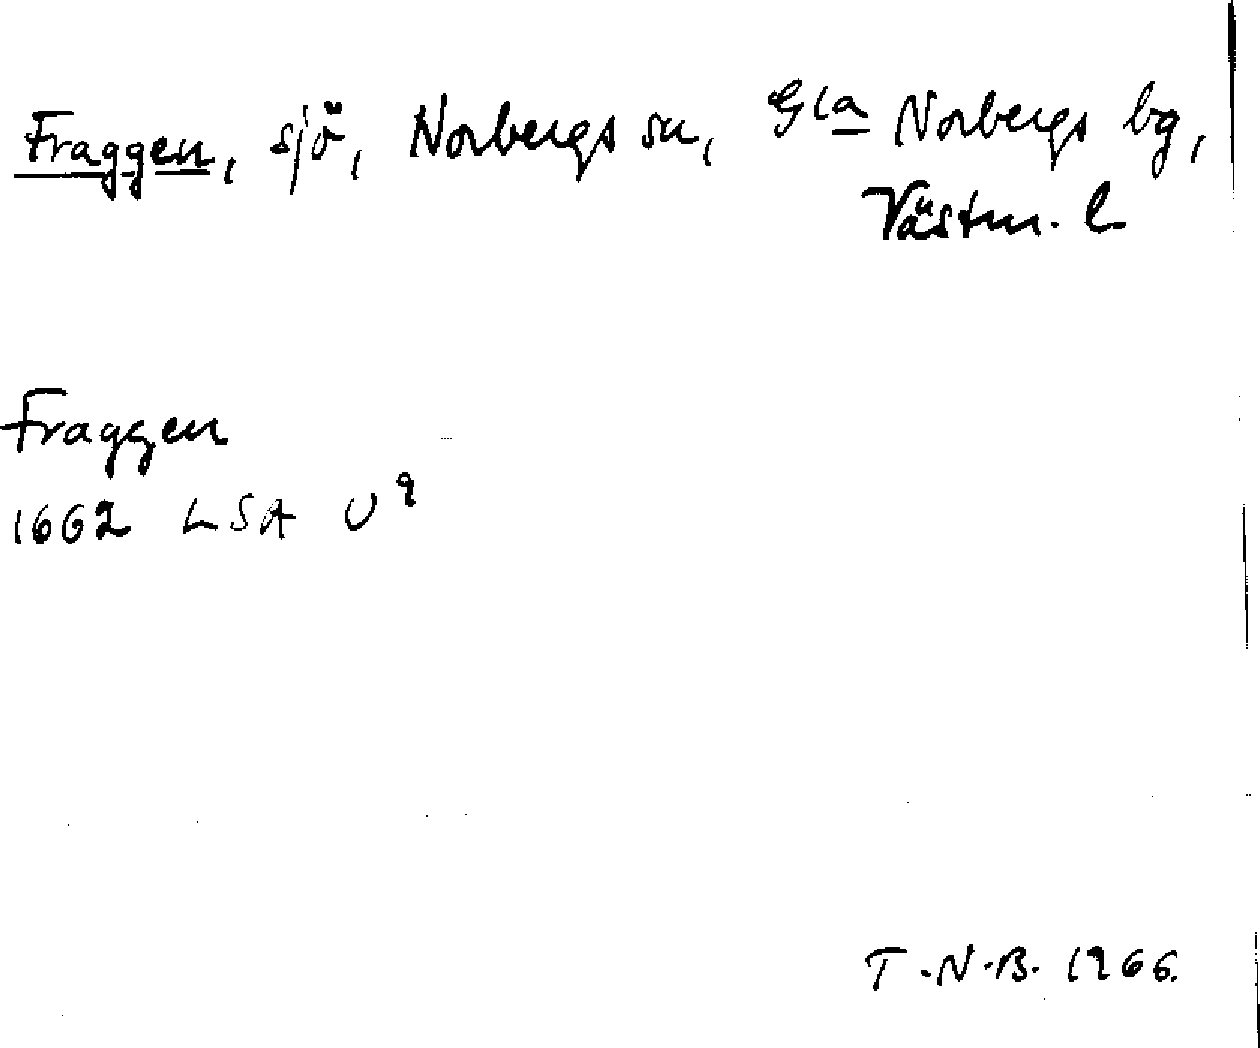 Fraggen, sjö, Norbergs sn, Gla Norbergs bg,
Västm. l.
Fraggen
1662 LSA U⁹
T.N.B. 1966.